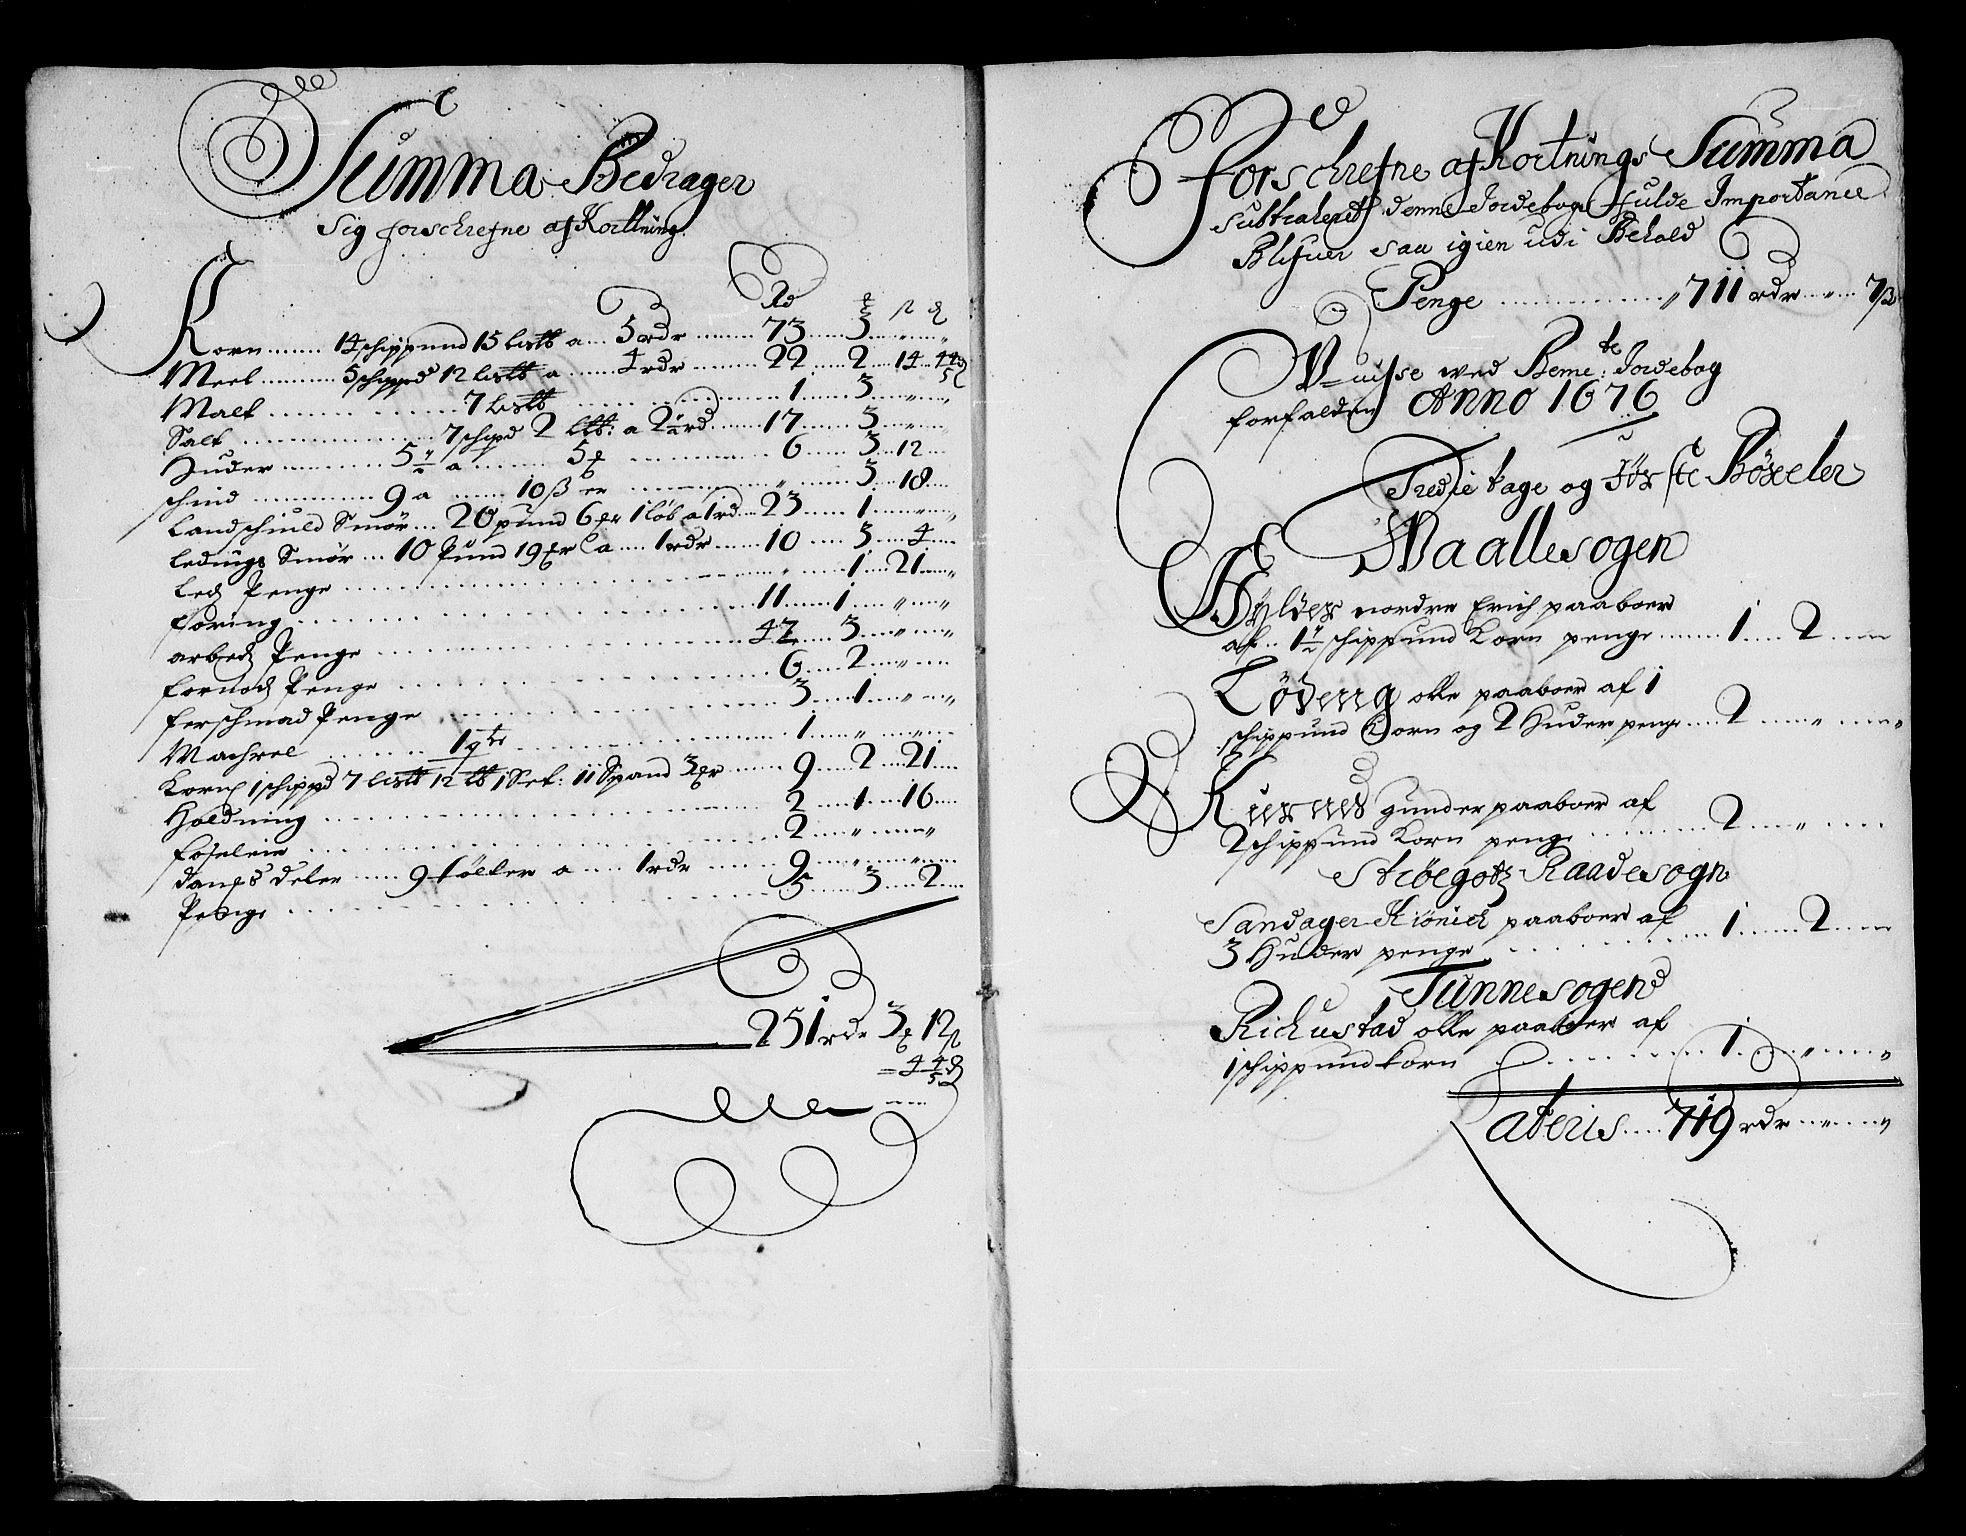 Summa Bedrager
Sig forschrefne afKortning
Rd ß
Korn 14 schippund 15 listt a 5 rdr 73 3
Meel 5 schippd 12 listt a 4 rdr 22 2 14 4 4/5
Malt 7 listt 1 3
Salt 7 schpd 2 ltt: a 2½ rd 17 3
Huder 5½ a 5 6 3 12
schind 9 a 10 ß er 3 18
Landschuld Smör 20 pund 6 1 löb a 1 rd 23 1
ledings Smör 10 Pund 19 a 1 rdr 10 3 4
Led Penge 1 21
foring 11 1
arbed Penge 42 3
fornod Penge 6 2
ferschmad Penge 3 1
Machrel 1 1
Korn 1 schippd 7 listt 12 tt 1 Set: 11 Spand 3 9 2 21
Holdning 2 1 16
foseleie 2
danefs deler 9 tölter a 1 rdr 9
Penge 5 3 2
251 rdr 3 12 ß
4 4/5
Forschrefne afKortnings Summa
subtraherit denne Jordebogs fulde Importance
Blifuer saa igien udi Behold
Penge 711 rdr 7 ß
Vuisse wed Bemte: Jordebog
forfalden Anno 1676
Tredie tage og förste Böxeler
Waallesogen
Hylder nordre Erich paaboer
af 1½ schippund Korn penge 1 2
Löveng olle paaboer af 1
schippund Korn og 2 Huder penge 2
gunder paaboer af
2 schippund Korn penge 2
Ströegotz Raadesogn
Sandager Kiönich paaboer af
3 Huder penge 1 2
Tunnesogen
Richustad olle paaboer af
1 schippund korn 1
Lateris 719 rdr